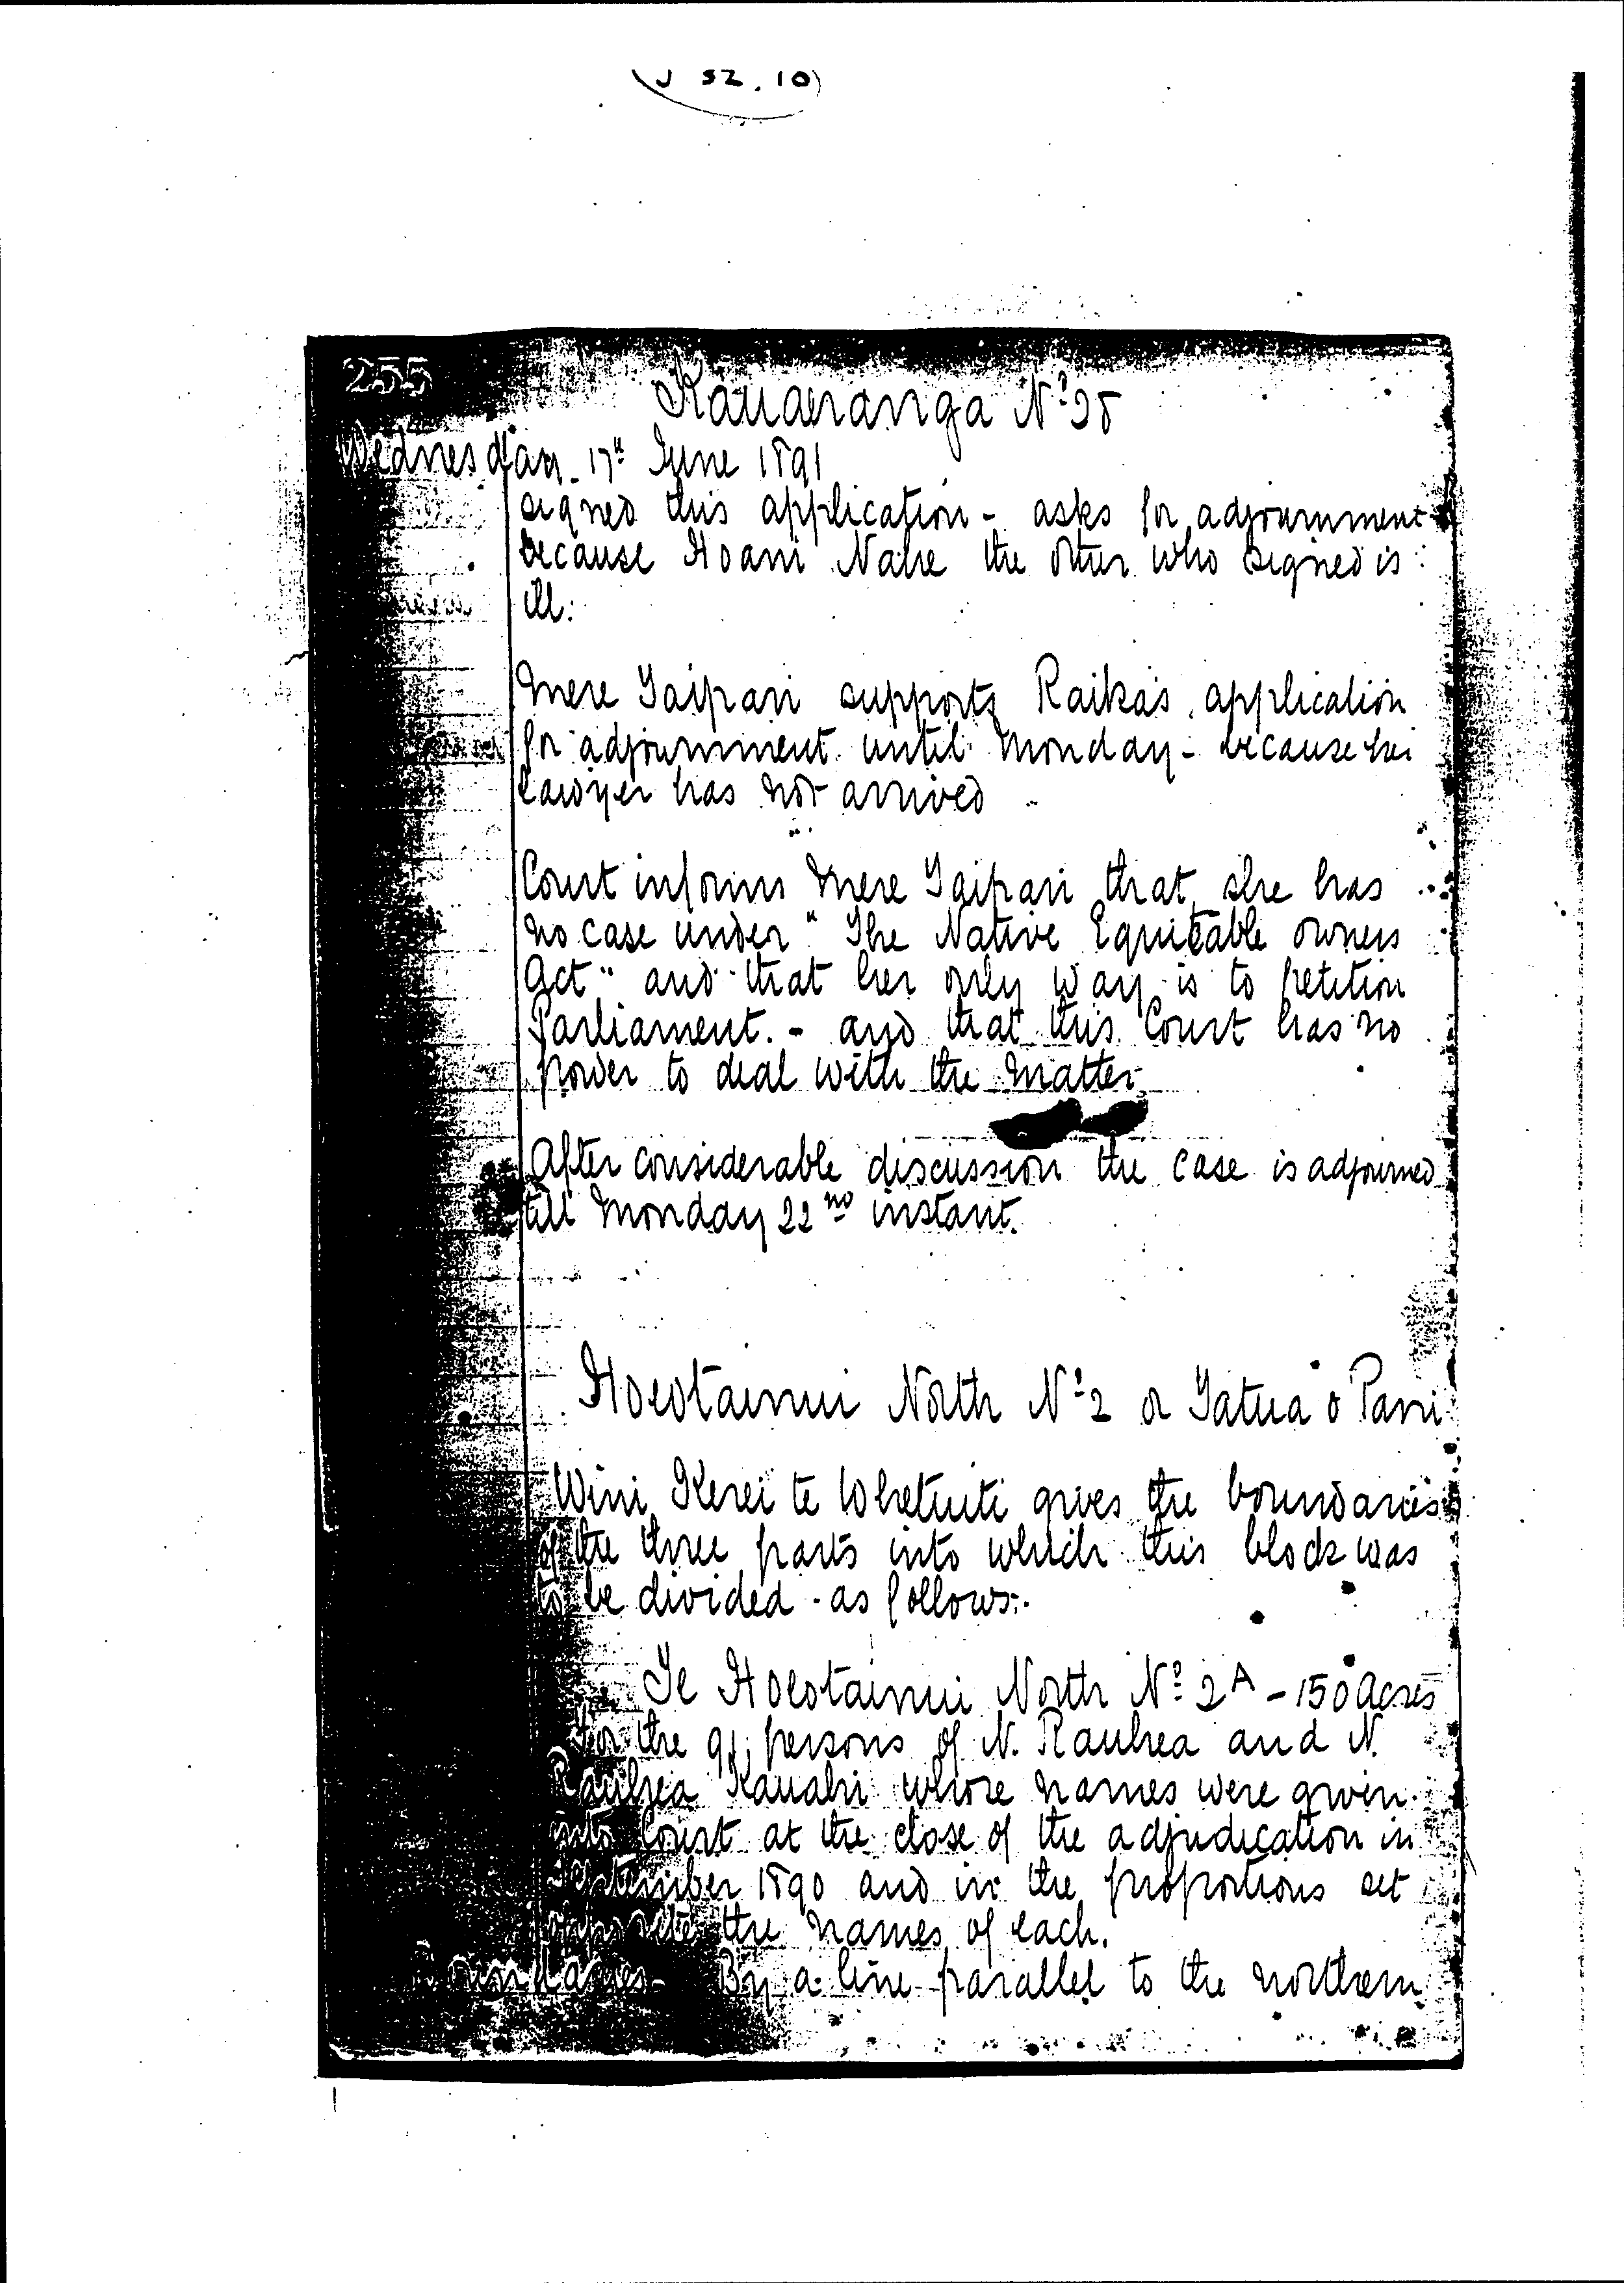 (J 52.10)
255
Kauaeranga Nº 28
Wednesday 17th June 1891
signed this application - asks for adjournment
because Hoani Nahe the other who signed is
ill:
Mere Taipari supports Raika's application
for adjournment until Monday - because her
lawyer has not arrived -
Court informs Mere Taipari that she has
no case under "The Native Equitable owners
Act" and that her only way is to petition
Parliament. - and that this Court has no
power to deal with the matter
After considerable discussion the case is adjourned
till Monday 22nd instant.
Hoeotainui North Nº 2 or Tatua o Pani
Wini Kerei te Whetuiti gives the boundaries
of the three parts into which this block was
to be divided - as follows:-
Te Hoeotainui North Nº 2A - 150 acres
For the 91 persons of N. Rauhea and N.
Rauhea Kauahi whose names were given
into Court at the close of the adjudication in
September 1890 and in the proportions set
opposite the names of each.
Boundaries - By a line parallel to the northern